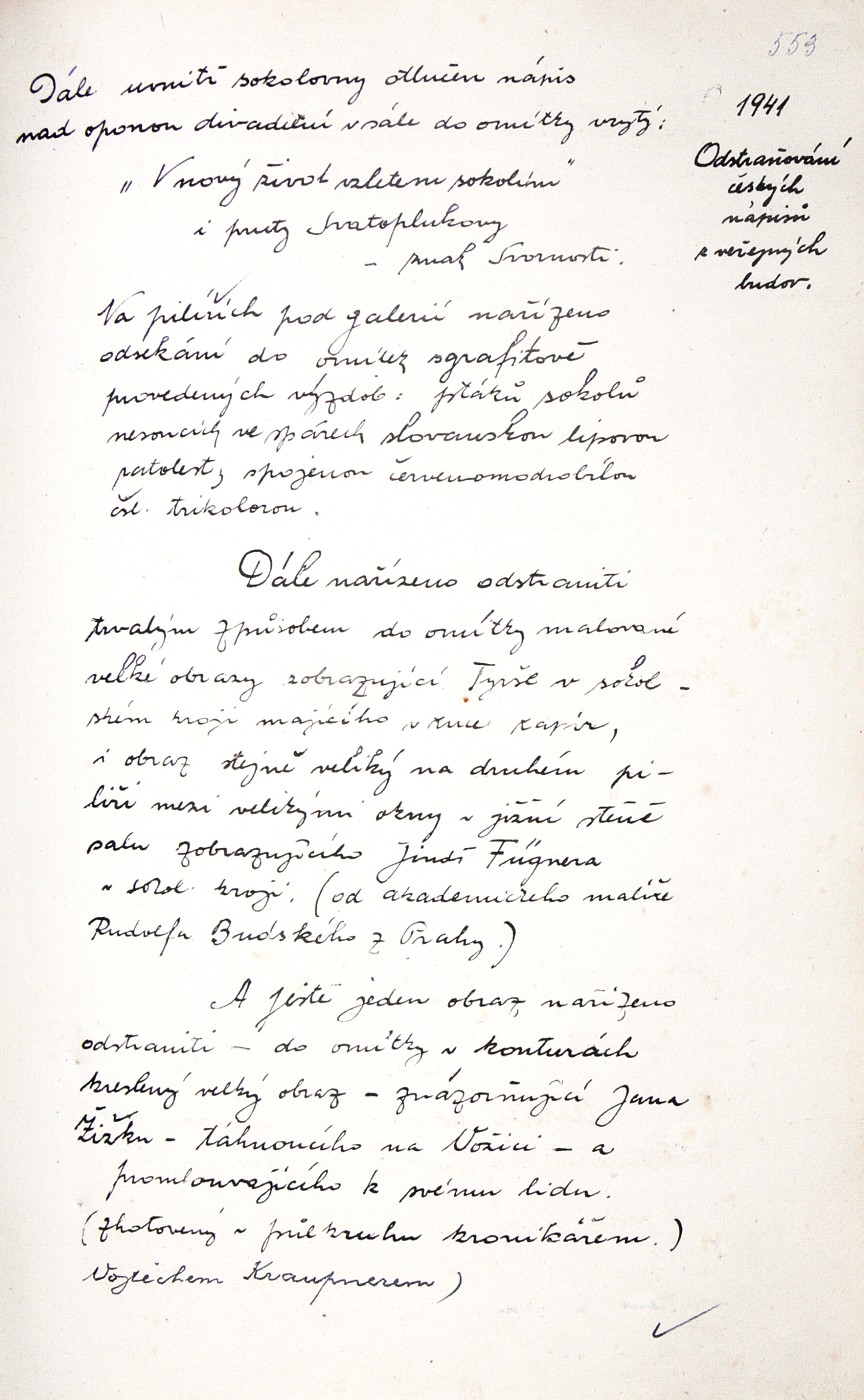 553
Dále uvnitř sokolovny otlučen nápis
nad oponou divadelní v sále do omítky vrytý:
„V nový život vzletem sokolím"
i pruty Svatoplukovy
– znak Svornosti.
1941
Odstraňování
českých
nápisů
z veřejných
budov.
Na pilířích pod galerií nařízeno
odsekání do omítek sgrafitově
provedených výzdob: ptáků sokolů
nesoucích ve spárech slovanskou lipovou
ratolest, spojenou červenomodrobílou
čsl. trikolorou.
Dále nařízeno odstraniti
trvalým způsobem do omítky malované
velké obrazy zobrazující Tyrše v sokol-
ském kroji majícího v ruce
i obraz stejně veliký na druhém pi-
líři mezi velikými okny v jižní stěně
salu zobrazujícího Jindř Fügnera
v sokol. kroji. (od akademického malíře
Rudolfa Budského z Prahy.)
A ještě jeden obraz nařízeno
odstraniti – do omítky v konturách
kreslený velký obraz – znázorňující Jana
Žižku – táhnoucího na Vožici – a
promlouvajícího k svému lidu.
(zhotovený v půlkruhu kronikářem.)
Vojtěchem Kraupnerem)